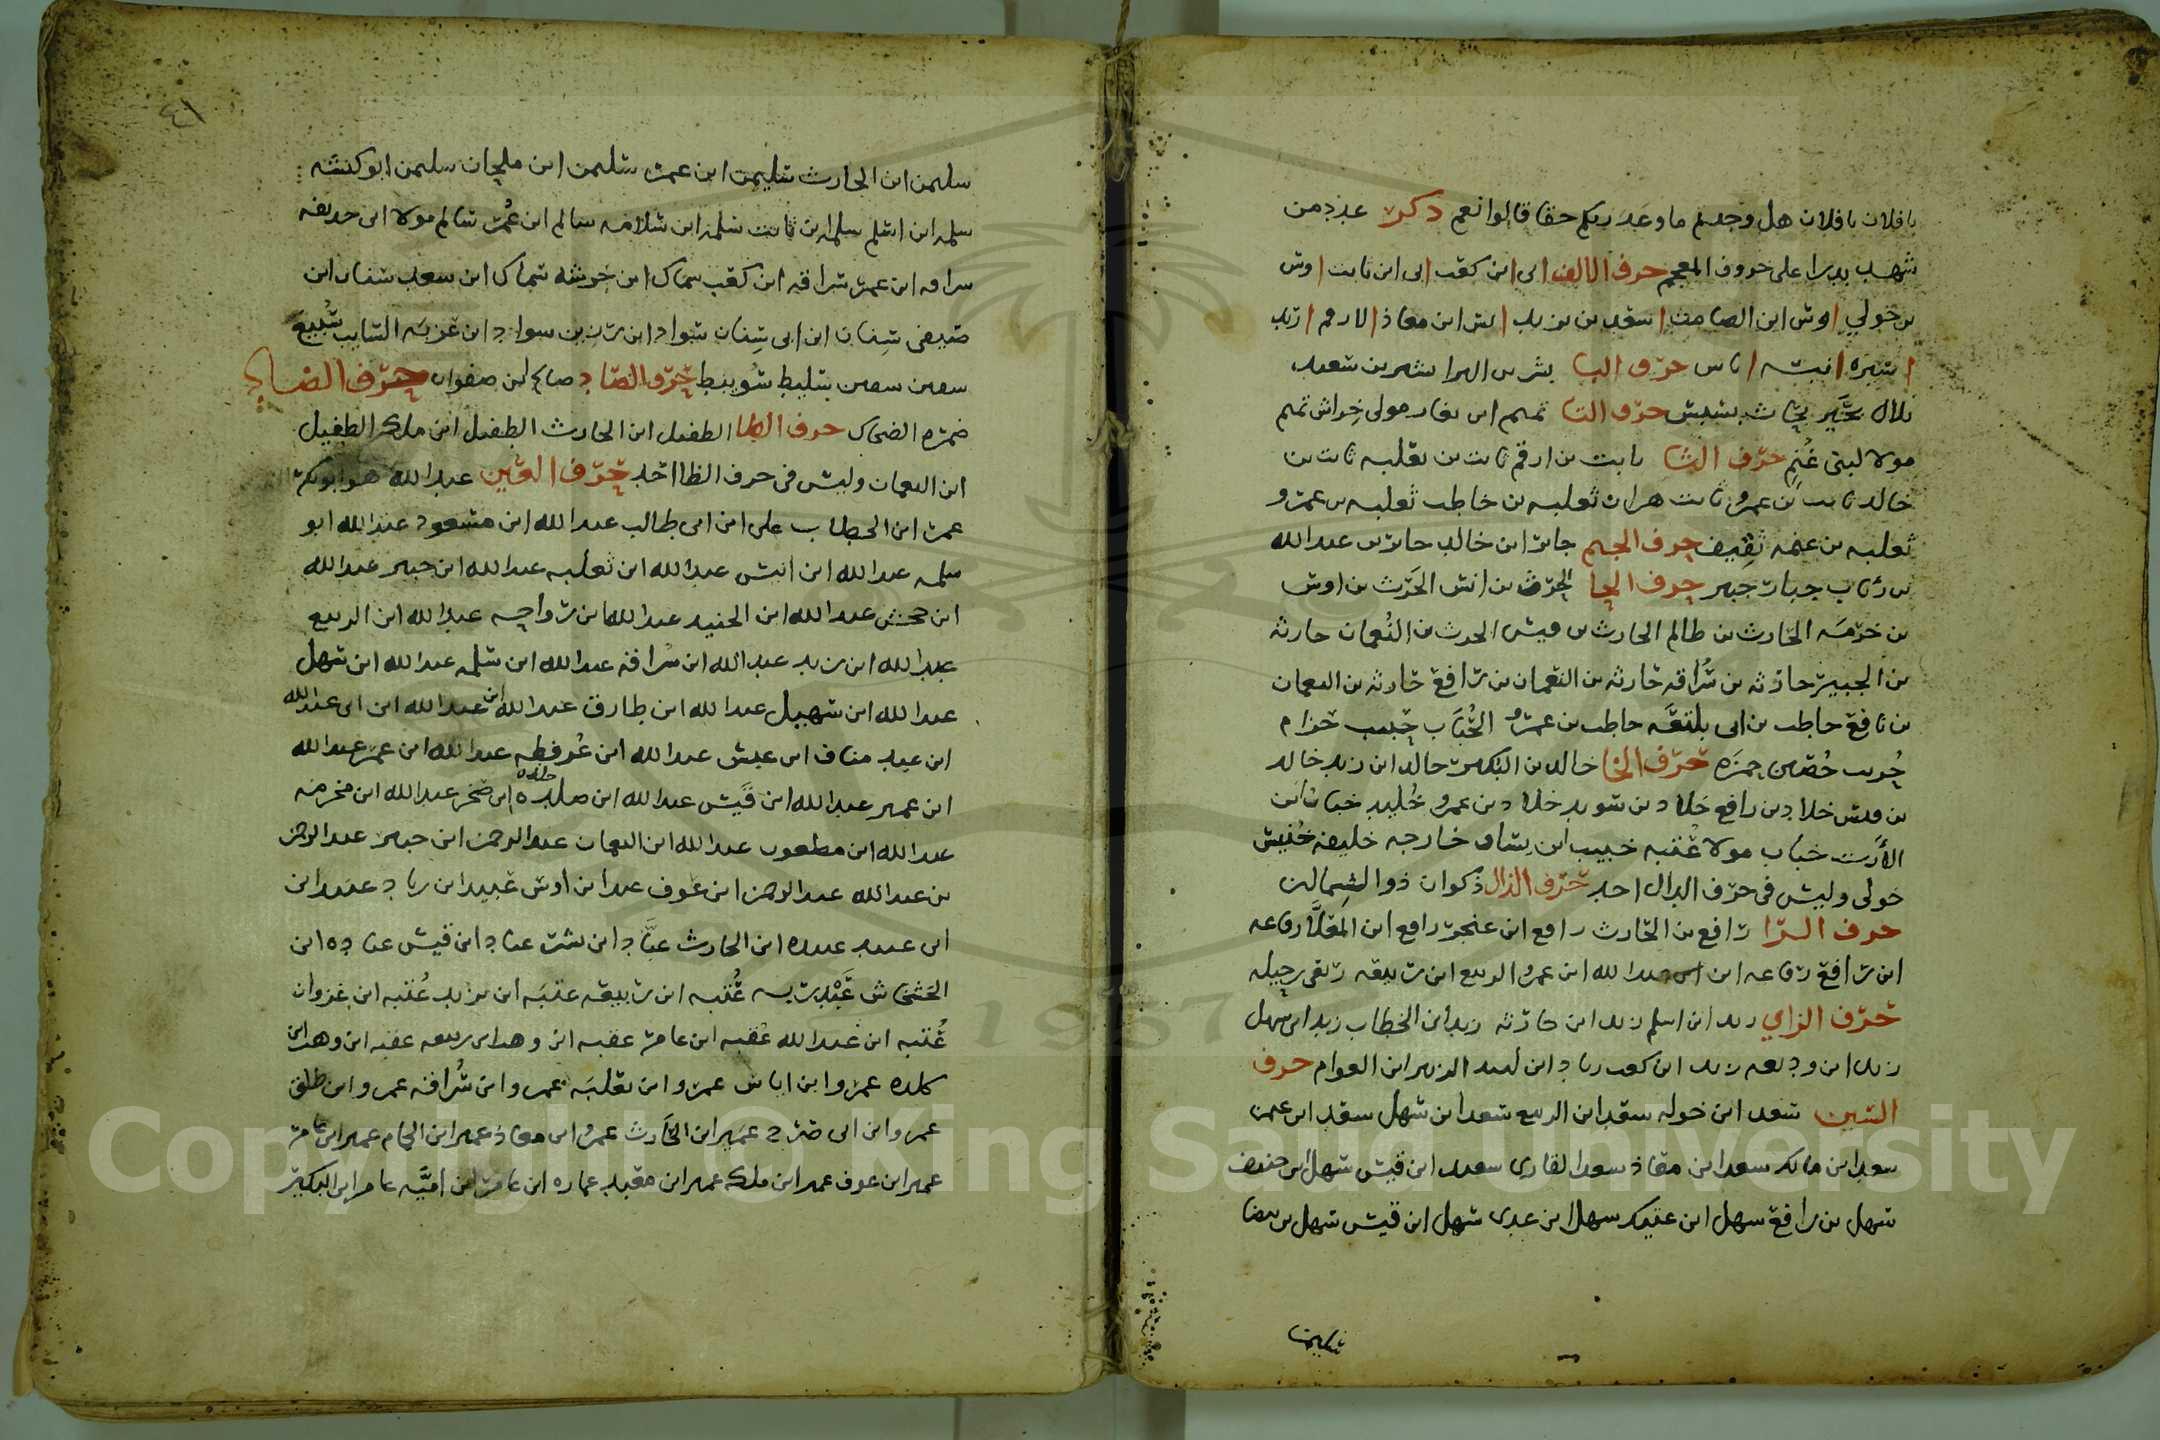 يا فلان يا فلان هل وجدتم ما وعد ربكم حقا قالوا نعم ذكر عدد من
شهد بدرا على حروف المعجم حرف الالف ابى ابن كعب ابى ابن ثابت اوس
بن خولي اوس ابن الصامت اسعد بن يزيد انس ابن معاذ الارقم اربد
اسيره انيسه اياس حرف البا بشر بن البرا بشير بن سعيد
بلال بحير بحاث بسبس حرف التا تميم ابن يعار مولى خراش تميم
مولا لبنى غنم حرف الثا ثابت بن ارقم ثابت بن ثعلبه ثابت بن
خالد ثابت بن عمرو ثابت هزان ثعلبه بن حاطب ثعلبه بن عمرو
ثعلبه بن عنمه ثقيف حرف الجيم جابر ابن خالد جابر بن عبد الله
بن رئاب جبار جبير حرف الحا الحرث بن انس الحرث بن اوس
بن خزمه الحارث بن ظالم الحارث بن قيس الحرث بن النعمان حارثه
بن الحمير حارثه بن سراقه حارثه بن النعمان بن رافع حارثه بن النعمان
بن نافع حاطب بن ابى بلتعه حاطب بن عمرو الحباب حبيب حرام
حريث حصين حمزه حرف الخا خالد بن البكير خالد ابن زيد خالد
بن قيس خلاد بن رافع خلاد بن سويد خلاد بن عمرو خليد خباب ابن
الأرت خباب مولا عتبه خبيب ابن يساف خارجه خليفه خنيس
خولى وليس فى حرف الدال احد حرف الذال ذكوان ذو الشمالين
حرف الرا رافع بن الحارث رافع ابن عنجره رافع ابن المعلا رفاعه
ابن رافع رفاعه ابن عبد الله ابن عمرو الربيع ابن ربيعه ربعى رحيله
حرف الزاي زيد ابن اسلم زيد ابن حارثه زيد ابن الخطاب زيد ابن سهل
زيد ابن وديعه زيد ابن كعب زياد ابن لبيد الزبير ابن العوام حرف
السين سعد ابن خوله سعد ابن الربيع سعد ابن سهل سعد ابن عمر
سعد ابن مالك سعد ابن معاذ سعد القاري سعيد ابن قيس سهل ابن حنيف
سهل بن رافع سهل ابن عتيك سهل ابن عدى سهل ابن قيس سهل بن بيضا
سليمن
٤١
سليمن ابن الحارث سليمن ابن عمر سليمن ابن ملحان سليمن ابو كبشه
سلمه ابن اسلم سلمه ابن ثابت سلمه ابن سلامه سالم ابن عمر سالم مولا ابن حذيفه
سراقه ابن عمر سراقه ابن كعب سماك ابن خرشه سماك ابن سعد سنان ابن
صيفى سنان ابن ابى سنان سواد ابن رزن بن سواد ابن غزيه السايب سبيع
سفين سفين سليط سويبط حرف الصاد صالح ابن صفوان حرف الضاد
ضمره الضحاك حرف الطا الطفيل ابن الحارث الطفيل ابن ملك الطفيل
ابن النعمان وليس فى حرف الظا احد حرف العين عبد الله هو ابو بكر
عمر ابن الخطاب على ابن ابى طالب عبد الله ابن مسعود عبد الله ابو
سلمه عبد الله ابن انيس عبد الله ابن ثعلبه عبد الله ابن جبير عبد الله
ابن جحش عبد الله ابن الحنيد عبد الله ابن رواحه عبد الله ابن الربيع
عبد الله ابن زيد عبد الله ابن سراقه عبد الله ابن سلمه عبد الله ابن سهل
عبد الله ابن سهيل عبد الله ابن طارق عبد الله ابن عبد الله ابن ابى عبد الله
ابن عبد مناف ابن عبس عبد الله ابن عرفطه عبد الله ابن عمر عبد الله
ابن عمير عبد الله ابن قيس عبد الله ابن خلده ابن صخر عبد الله ابن مخرمه
عبد الله ابن مظعون عبد الله ابن النعمان عبد الرحمن ابن جبير عبد الرحمن
بن عبد الله عبد الرحمن ابن عوف عبد ابن اوس عبيد ابن زياد عبيد ابن
ابى عبيد عبيده ابن الحارث عباد ابن بشر عباد ابن قيس عباده ابن
الخشخاش عبد ربه عتبه ابن ربيعه عتبه ابن يزيد عتبه ابن غزوان
عتبه ابن عبد الله عقبه ابن عامر عقبه ابن وهب ابن ربيعه عقبه ابن وهب ابن
كلده عمرو ابن اياس عمرو ابن ثعلبه عمرو ابن سراقه عمرو ابن طلق
عمرو ابن ابى سرح عمير ابن الحارث عمرو ابن معاذ عمير ابن الحمام عمير ابن عامر
عمير ابن عوف عمير ابن ملك عمير ابن معبد عماره ابن عامر ابن اميه عامر ابن البكير
Copyright © King Saud University
1957